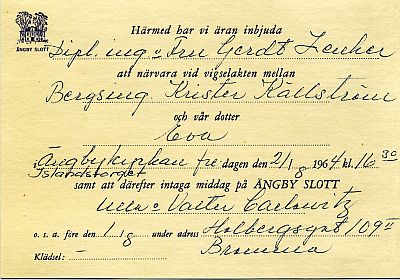 ÄNGBY SLOTT
Härmed har vi äran inbjuda
Dipl. ing. o Fru Gerdt Zenker
att närvara vid vigselakten mellan
Bergsing Krister Källström
och vår dotter
Eva
Ängbykyrkan fre dagen den 21/8 1964 kl. 16 30
Islandstorget
samt att därefter intaga middag på ÄNGBY SLOTT
Ulla o Walter Carlowitz
o. s. a. före den 1/8 under adress Holbergsgat 109 II
Klädsel: — Bromma